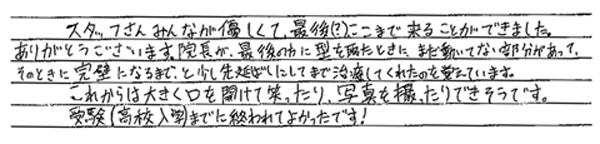 スタッフさんみんなが優しくて、最後(?)ここまで来ることができました。
ありがとうございます。院長が、最後の方に型を取たときに、まだ動いてない部分があって、
そのときに完璧になるまで、と少し先延ばしにしてまで治療してくれたのを覚えています。
これからは大きく口を開けて笑ったり、写真を撮ったりできそうです。
受験(高校入学)までに終われてよかったです!